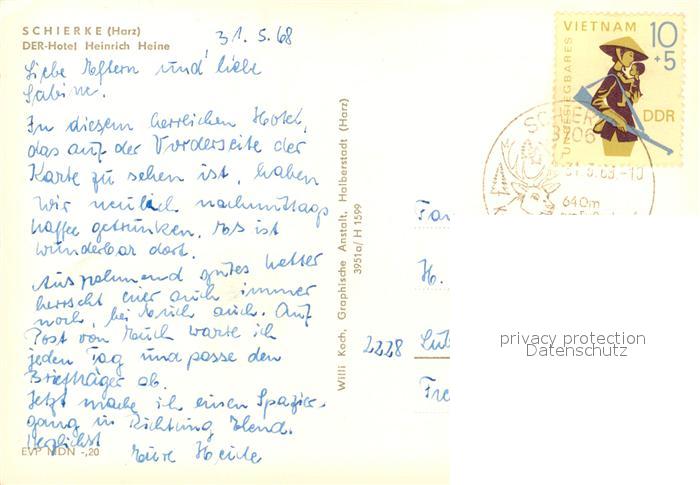 SCHIERKE (Harz)
DER-Hotel Heinrich Heine
31. 5. 68
Liebe Eltern und liebe
Sabine.
In diesem herrlichen Hotel,
das auf der Vorderseite der
Karte zu sehen ist, haben
wir neulich nachmittags
Kaffee getrunken. Es ist
wunderbar dort.
Ausnehmend gutes Wetter
herrscht hier auch immer
noch, bei Euch auch. Auf
Post von Euch warte ich
jeden Tag und passe den
Briefträger ab.
Jetzt mache ich einen Spazier-
gang in Richtung Elend.
Herzlichst
Eure Heide
EVP MDN -,20
Willi Koch, Graphische Anstalt, Halberstadt (Harz)
3951a/ H 1599
VIETNAM 10
+5
UNBESIEGBARES
DDR
3706
640m
H.
2228
privacy protection
Datenschutz